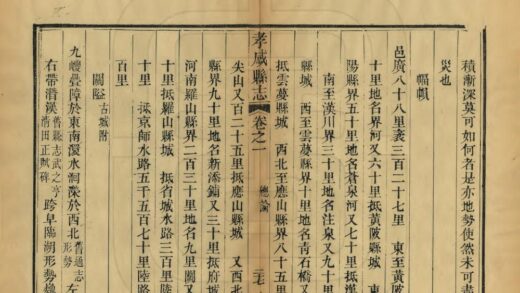 積漸深莫可如何者是亦地勢使然未可盡
災也
幅幀
邑廣八十八里袤三百二十七里 東至黃陂
十里地名界河又六十里抵黃陂縣城 東
陽縣界五十里地名蒼泉河又七十里抵漢
南至漢川界三十里地名注泉又九十里
縣城 西至雲夢縣界十里地名青石橋又
抵雲夢縣城 西北至應山縣界八十五里
孝感縣志 卷之一 總論 二七
尖山又百二十五里抵應山縣城 又西北
縣界九十里地名新添鋪又三十里抵府城
河南羅山縣界二百三十里地名九里關又
十里抵羅山縣城 抵省城水路三百里陸
十里 抵京師水路五千五百七十里陸路
百里
關隘 古城附
九嵕疊障於東南澴水深於西北 舊通志形勢 左
右帶潛漢 舊縣志武之亨潛田正賦碑 跨阜臨湖形勢雄